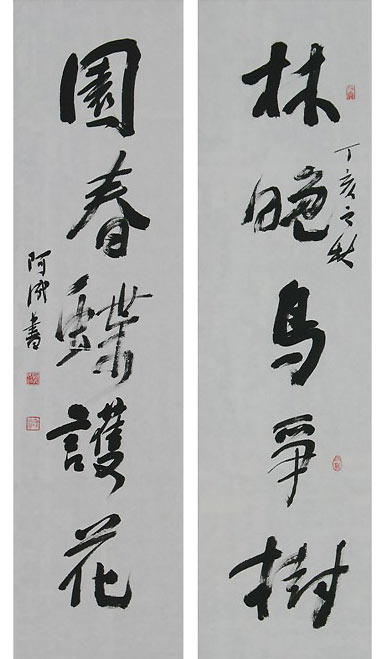 林晚鳥爭樹
丁亥之秋
園春蝶護花
阿書